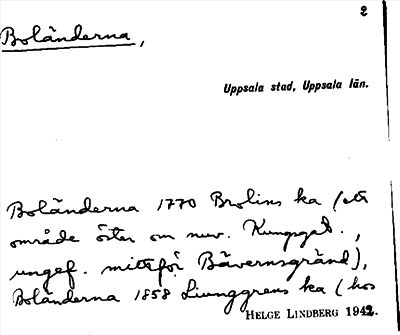 2
Boländerna,
Uppsala stad, Uppsala län.
Boländerna 1770 Brolins ka (ett
område öster om nuv. Kungsgat.,
ungef. mittför Bävernsgränd),
Boländerna 1858 Ljunggrens ka (hos
HELGE LINDBERG 1942.